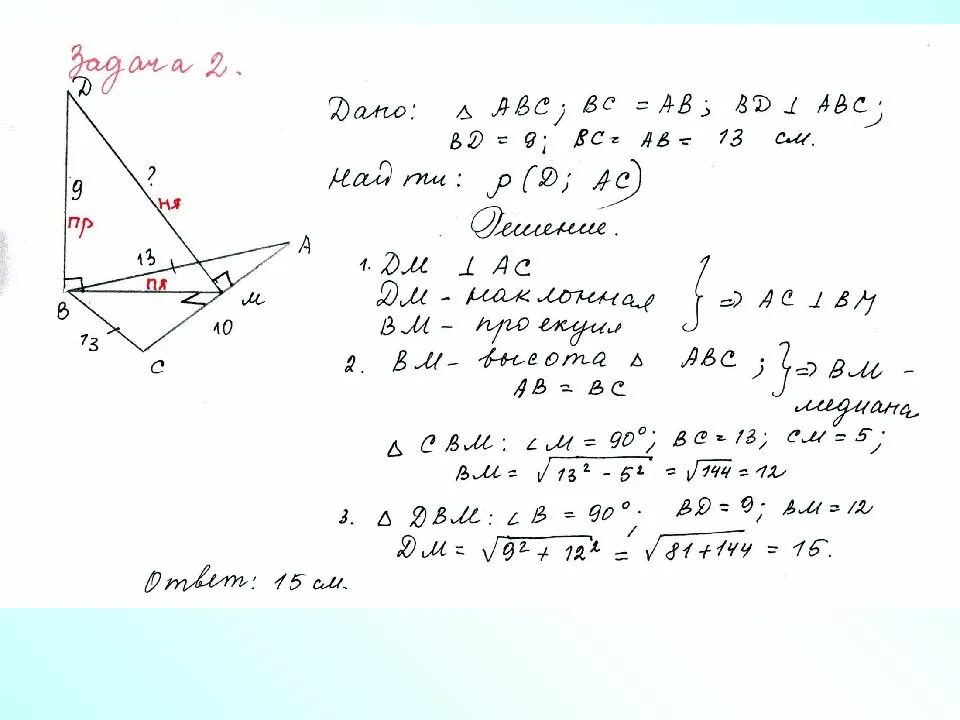 Задача 2.
Дано: △ ABC; BC = AB; BD ⊥ ABC;
BD = 9; BC = AB = 13 см.
Найти: ρ(D; AC)
Решение.
1. DM ⊥ AC
DM - наклонная
BM - проекция
} ⇒ AC ⊥ BM
2. BM - высота △ ABC;
AB = BC
} ⇒ BM -
медиана
△ CBM: ∠M = 90°; BC = 13; CM = 5;
BM = √(13² - 5²) = √144 = 12
3. △ DBM: ∠B = 90°; BD = 9; BM = 12
DM = √(9² + 12²) = √(81+144) = 15.
Ответ: 15 см.
D
9
?
пр
ня
A
13
пя
B
M
10
13
C